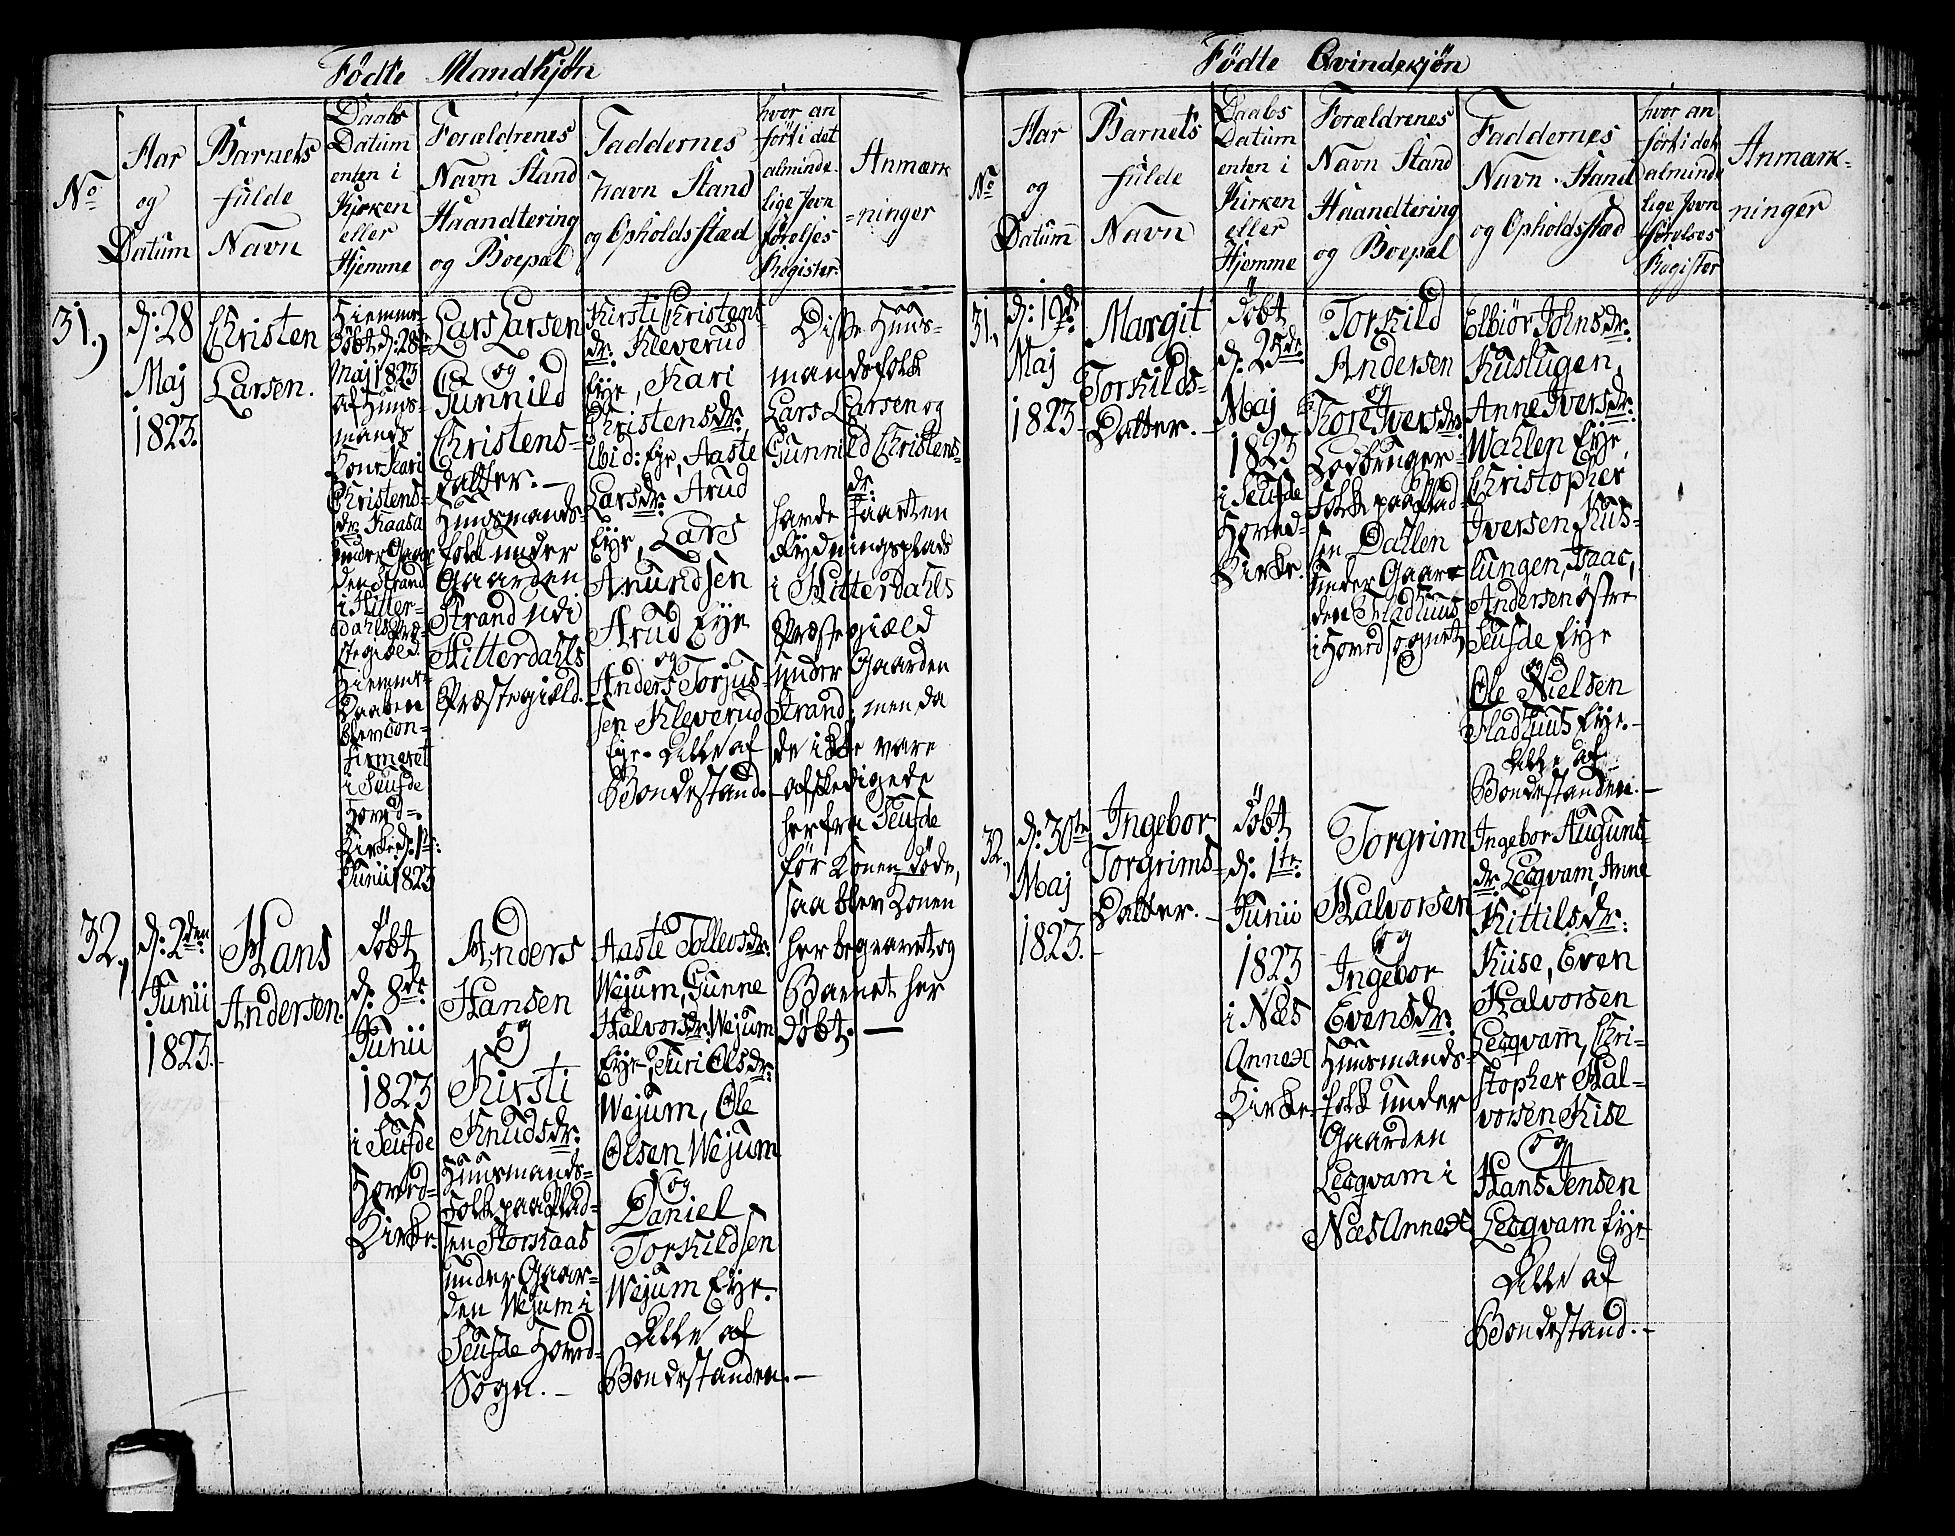 Fødte Mandkjøn
No
Aar
og
Datum
Barnets
fulde
Navn
Daabs
Datum
enten i
Kirken
eller
Hjemme
Forældrenes
Navn Stand
Haandtering
og Boepæl
Faddernes
Navn Stand
og Opholdsstæd
hvor an
ført i det
alminde
lige Jevn
førelses
Register
Anmærk
=ninger
31.)
d: 28
Maj
1823.
Christen
Larsen.
Hiemme-
døbt d: 28de
Maj 1823
af Huus-
mands
Konr Kari
Christens-
dr. Kaasa
under Gaar
den Strand
i Hitter-
dahls Præ-
stegield.
Hiemme-
Daaben
blev con-
firmeret
i Seufde
Hoved-
Kirke d: 1te:
Junii 1823
Lars Larsen
og
Gunnild
Christens-
datter. —
Huusmands-
folk under
Gaarden
Strand udi
Hitterdahls
Præstegield.
Kirsti Christens-
dr. Kleverud
Eje, Kari
Christensdr.
Ibid: Eje, Aaste
Larsdr. Arud
Eje, Lars
Anundsen
Arud Eje
og
Anders Torjus-
sen Kleverud
Eje - Alle af
Bondestand. -
Disse Huus-
mandsfolk
Lars Larsen og
Gunnild Christens-
dr.
havde faaet en
Rydningsplads
i Hitterdahls
Præstegield
under Gaarden
Strand, men da
de ikke vare
afskedigede
herfra Seufde
før Konen døde,
saa blev Konen
her begravet og
Barnet her
døbt. —
32.)
d: 2den
Junii
1823.
Hans
Andersen.
døbt
d: 8de
Junii
1823
i Seufde
Hoved-
Kirke.
Anders
Hansen
og
Kirsti
Knudsdr.
Huusmands-
Folk paa Plad-
sen Storkaas
under Gaar-
den Wejum i
Seufde Hoved-
Sogn. —
Aaste Tollevsdr.
Wejum, Gunne
Halvorsdr. Wejum
Eje, Turi Olsdr.
Wejum, Ole
Olsen Wejum
og
Daniel
Torkildsen
Wejum Eje.
Alle af
Bondestanden. —
Fødte Qvindekjøn
No
Aar
og
Datum
Barnets
fulde
Navn
Daabs
Datum
enten i
Kirken
eller
Hjemme
Forældrenes
Navn Stand
Haandtering
og Boepæl
Faddernes
Navn Stand
og Opholdsstæd
hvor an
ført i det
alminde
lige Jevn
førelses
Register
Anmærk-
ninger
31.)
d: 19de
Maj
1823
Margit
Torkilds-
Datter. -
døbt
d: 25de
Maj
1823
i Seufde
Hoved-
Kirke.
Torkild
Andersen
og
Tore Iversdr.
Losbruger-
folk paa Plad-
sen Dahlen
under Gaar-
den Fladhuus
i Hovedsognet
Elbiør Johnsdr.
Kuslugen,
Anne Iversdr.
Wahlen Eje,
Christopher
Iversen Kus-
lungen, Isaac
Andersen østre
Seufde Eje
og
Ole Nielsen
Fladhuus Eje. -
Alle af
Bondestanden. —
32.)
d: 30te
Maj
1823.
Ingebor
Torgrims-
Datter. -
døbt
d: 1te:
Junii
1823
i Næs
Annex
Kirke.
Torgrim
Halvorsen
og
Ingebor
Evensdr.
Huusmands-
folk under
Gaarden
Lecqvam i
Næs Annex
Ingebor Auguns-
dr. Lecqvam, Anne
Kittilsdr:
Kiise, Even
Halvorsen
Lecqvam, Chri-
stopher Hal-
vorsen Kise
og
Hans Jensen
Lecqvam Eje
Alle af
Bondestand. -